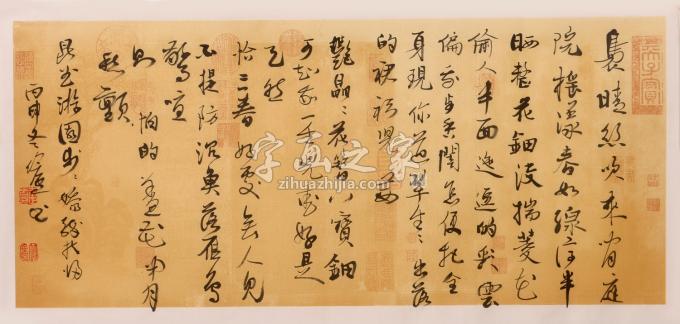 裊晴絲吹來閒庭
院摇漾春如線停半
晌整花鈿没揣菱花
偷人半面迤逗的彩雲
偏我步香閨怎便把全
身現你道翠生〻出落
的裙衫児茜
艷晶〻花簪八寶鈿
可知我一生児爱好是
天然
恰三春好處無人見
不提防沉魚落雁鳥
驚喧
則怕的羞花閉月
愁顫
昆曲游園
丙申冬 书
字画之家
zihuazhijia.com